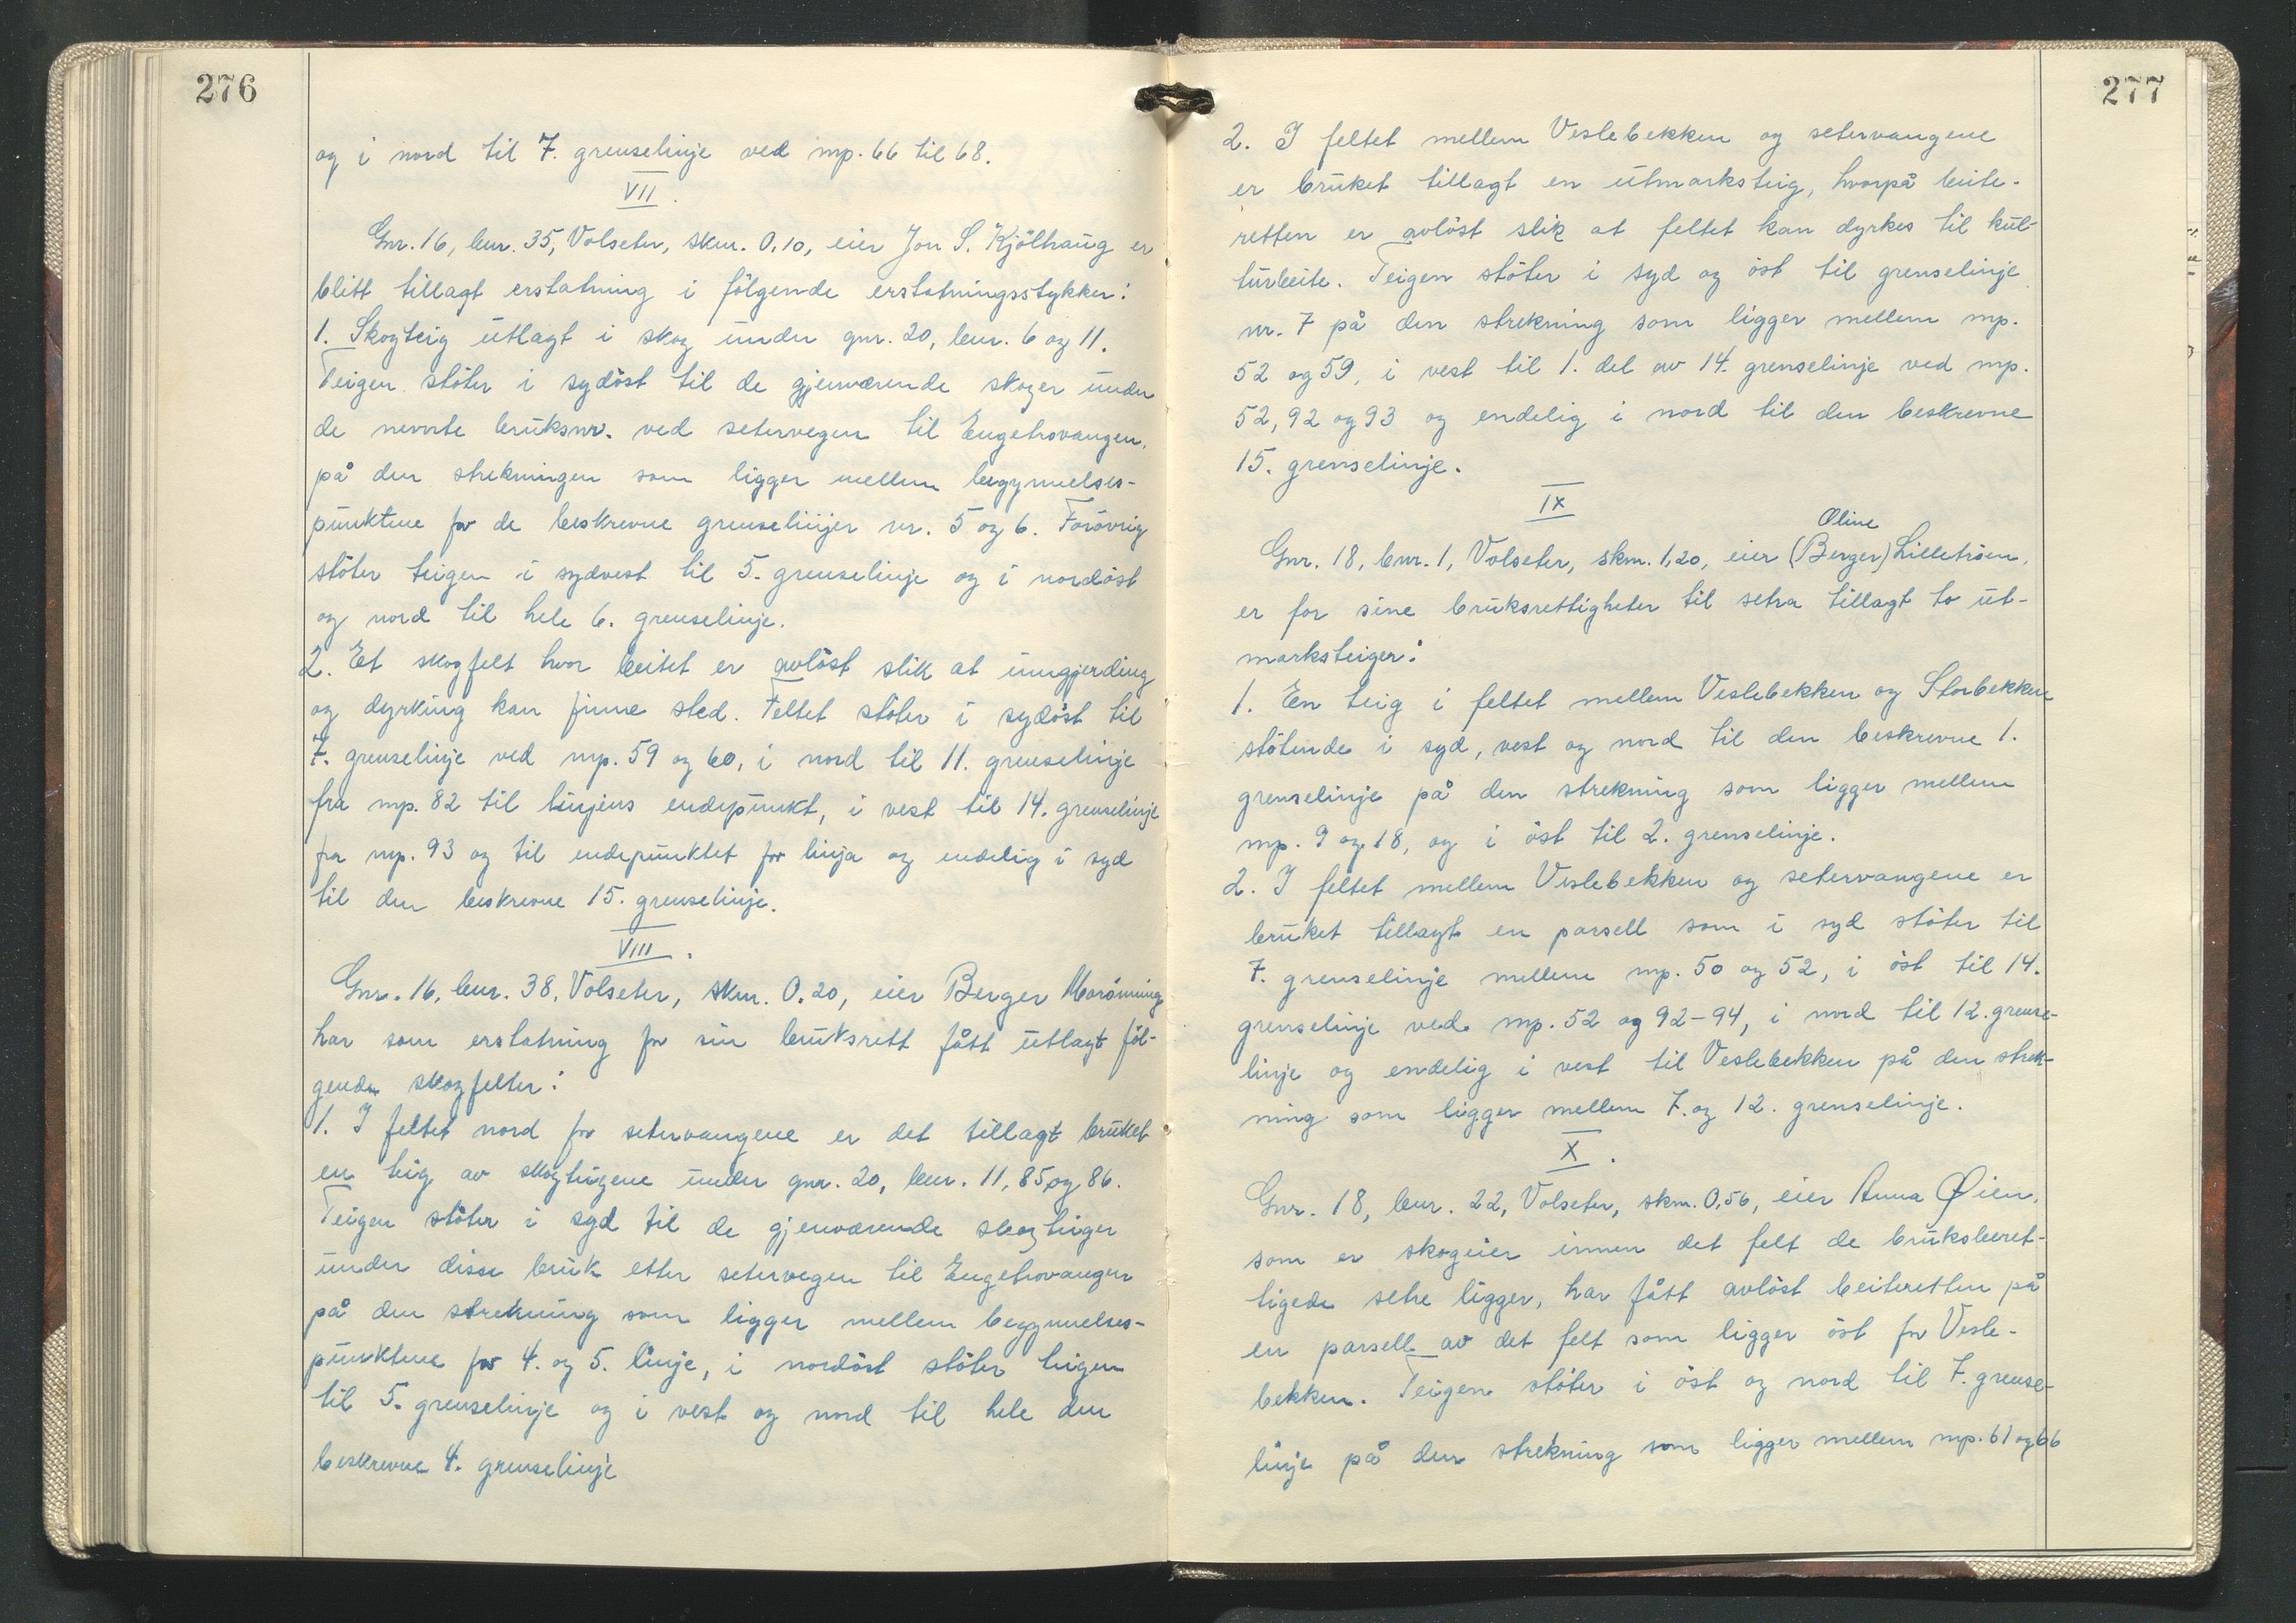 276
og i nord til 7. grenselinje ved mp. 66 til 68.
VII.
Gnr. 16, bnr. 35, Volseter, skm. 0.10, eier Jon S. Kjölhaug er
blitt tillagt erstatning i fölgende erstatningsstykker:
1. Skogteig utlagt i skog under gnr. 20, bnr. 6 og 11.
Teigen stöter i sydöst til de gjenværende skoger under
de nevnte bruksnr. ved setervegen til Engetrovangen,
på den strekningen som ligger mellem begynnelses-
punktene for de beskrevne grenselinjer nr. 5 og 6. Forövrig
stöter teigen i sydvest til 5. grenselinje og i nordöst
og nord til hele 6. grenselinje.
2. Et skogfelt hvor beitet er avlöst slik at inngjerding
og dyrking kan finne sted. Feltet stöter i sydöst til
7. grenselinje ved mp. 59 og 60, i nord til 11. grenselinje
fra mp. 82 til linjens endepunkt, i vest til 14. grenselinje
fra mp. 93 og til endepunktet for linja og endelig i syd
til den beskrevne 15. grenselinje.
VIII.
Gnr. 16, bnr. 38, Volseter, skm. 0.20, eier Berger
har som erstatning for sin bruksrett fått utlagt föl-
gende skogfelter:
1. I feltet nord for setervangene er det tillagt bruket
en teig av skogteigene under gnr. 20, bnr. 11, 85 og 86.
Teigen stöter i syd til de gjenværende skogteiger
under disse bruk etter setervegen til Engetrovangen
på den strekning som ligger mellem begynnelses-
punktene for 4. og 5. linje, i nordöst stöter teigen
til 5. grenselinje og i vest og nord til hele den
beskrevne 4. grenselinje
277
2. I feltet mellem Veslebekken og setervangene
er bruket tillagt en utmarksteig, hvorpå beite-
retten er avlöst slik at feltet kan dyrkes til kul-
turbeite. Teigen stöter i syd og öst til grenselinje
nr. 7 på den strekning som ligger mellem mp.
52 og 59, i vest til 1. del av 14. grenselinje ved mp.
52, 92 og 93 og endelig i nord til den beskrevne
15. grenselinje.
IX
Oline
Gnr. 18, bnr. 1, Volseter, skm. 1,20, eier (Berger) Lilletröen,
er for sine bruksrettigheter til setra tillagt to ut-
marksteiger:
1. En teig i feltet mellem Veslebekken og Storbekken
stötende i syd, vest og nord til den beskrevne 1.
grenselinje på den strekning som ligger mellem
mp. 9 og 18, og i öst til 2. grenselinje.
2. I feltet mellem Veslebekken og setervangene er
bruket tillagt en parsell som i syd stöter til
7. grenselinje mellem mp. 50 og 52, i öst til 14.
grenselinje ved mp. 52 og 92-94, i nord til 12. grense-
linje og endelig i vest til Veslebekken på den strek-
ning som ligger mellem 7. og 12. grenselinje.
X.
Gnr. 18, bnr. 22, Volseter, skm. 0,56, eier Anna Øien,
som er skogeier innen det felt de bruksberet-
tigede setre ligger, har fått avlöst beiteretten på
en parsell av det felt som ligger öst for Vesle-
bekken. Teigen stöter i öst og nord til 7. grense-
linje på den strekning som ligger mellem mp. 61 og 66